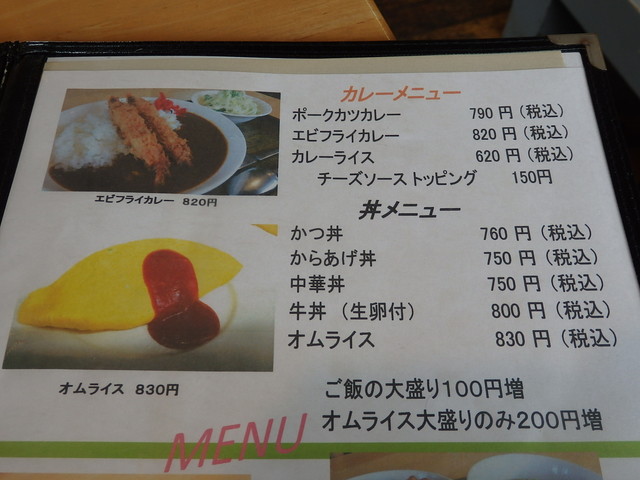 カレーメニュー
ポークカツカレー 790 円（税込）
エビフライカレー 820 円（税込）
カレーライス 620 円（税込）
チーズソーストッピング 150円
エビフライカレー 820円
丼メニュー
かつ丼 760 円（税込）
からあげ丼 750 円（税込）
中華丼 750 円（税込）
牛丼 （生卵付） 800 円（税込）
オムライス 830 円（税込）
オムライス 830円
ご飯の大盛り100円増
オムライス大盛りのみ200円増
MENU